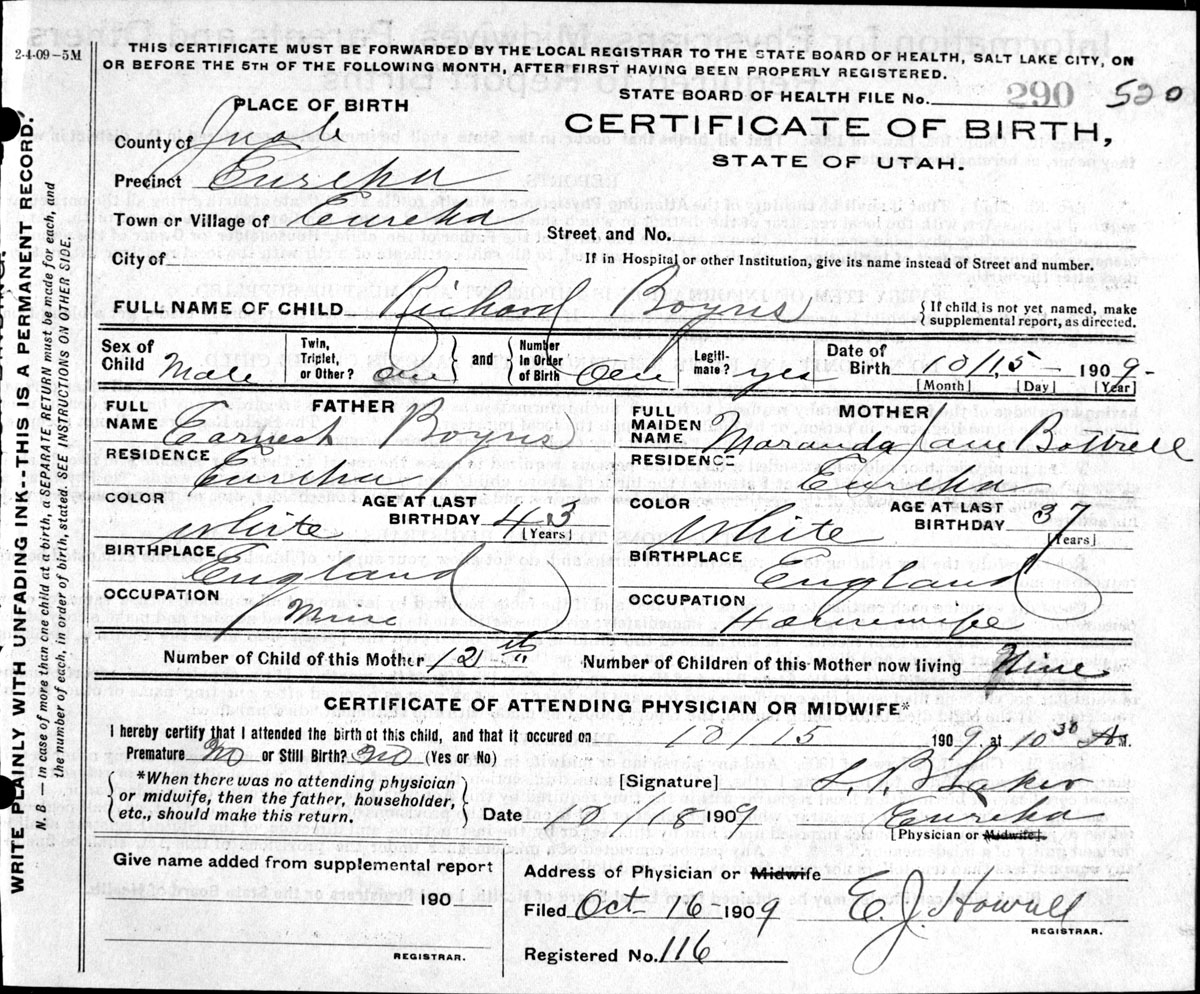 2-4-09-5M
THIS CERTIFICATE MUST BE FORWARDED BY THE LOCAL REGISTRAR TO THE STATE BOARD OF HEALTH, SALT LAKE CITY, ON
OR BEFORE THE 5TH OF THE FOLLOWING MONTH, AFTER FIRST HAVING BEEN PROPERLY REGISTERED.
STATE BOARD OF HEALTH FILE No. 290 520
PLACE OF BIRTH
CERTIFICATE OF BIRTH,
STATE OF UTAH.
County of Juab
Precinct Eureka
Town or Village of Eureka
Street and No.
City of
If in Hospital or other Institution, give its name instead of Street and number.
FULL NAME OF CHILD Richard Boyns { If child is not yet, named, make supplemental report, as directed.
Sex of Child Male Twin, Triplet, or Other? one } and { Number In Order of Birth One Legitimate? yes Date of Birth 10/15 - 1909-
[Month] [Day] [Year]
FATHER
FULL NAME Earnest Boyns
MOTHER
FULL MAIDEN NAME Maranda Jane Bottrell
RESIDENCE Eureka
RESIDENCE Eureka
COLOR White AGE AT LAST BIRTHDAY 43 [Years]
COLOR White AGE AT LAST BIRTHDAY 37 [Years]
BIRTHPLACE England
BIRTHPLACE England
OCCUPATION
OCCUPATION Housewife
Number of Child of this Mother 12th Number of Children of this Mother now living Nine
CERTIFICATE OF ATTENDING PHYSICIAN OR MIDWIFE*
I hereby certify that I attended the birth of this child, and that it occured on 10/15 1909, at 10 30 A M.
Premature? No or Still Birth? No (Yes or No)
*When there was no attending physician
or midwife, then the father, householder,
etc., should make this return.
[Signature]
Date 10 - 18 1909 Eureka
[Physician or Midwife].
Give name added from supplemental report
190
REGISTRAR.
Address of Physician or Midwife
Filed Oct 16 1909 E. J. Howell
REGISTRAR.
Registered No. 116
WRITE PLAINLY WITH UNFADING INK--THIS IS A PERMANENT RECORD.
N. B. — in case of more than one child at a birth, a SEPARATE RETURN must be made for each, and
the number of each, in order of birth, stated. SEE INSTRUCTIONS ON OTHER SIDE.